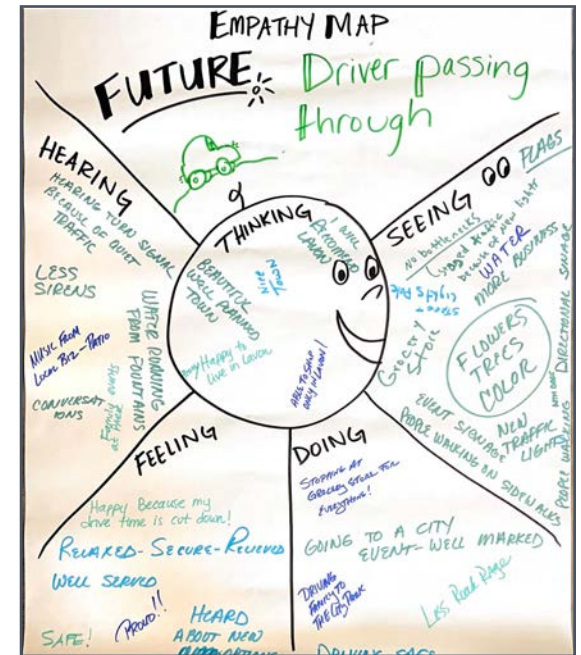 EMPATHY MAP
FUTURE
Driver passing
through
HEARING
HEARING TURN SIGNAL
BECAUSE OF QUIET
TRAFFIC
LESS
SIRENS
MUSIC FROM
LOCAL BIZ-PATIO
WATER RUNNING
FROM FOUNTAINS
CONVERSAT
IONS
Family
at Park
THINKING
I WILL
RECOMMEND
LAVON
BEAUTIFUL
WELL PLANNED
TOWN
NICE
TOWN
Happy to
live in Lavon
ABLE TO SHOP
ONLY IN LAVON!
SEEING
FLAGS
No bottlenecks
traffic
because of New lights
WATER
MORE BUSINESS
Grocery
Store
FLOWERS
TREES
COLOR
DIRECTIONAL SIGNAGE
PEOPLE WALKING
EVENT SIGNAGE
NEW
TRAFFIC
LIGHTS
PEOPLE WALKING ON SIDEWALKS
FEELING
Happy Because my
drive time is cut down!
RELAXED-SECURE-RELIEVED
WELL SERVED
SAFE!
PROUD!!
HEARD
ABOUT NEW
DOING
STOPPING AT
GROCERY STORE FOR
EVERYTHING!
GOING TO A CITY
EVENT-WELL MARKED
DRIVING
FAMILY TO
THE CITY PARK
Less Road Rage
DRIVING SAFE